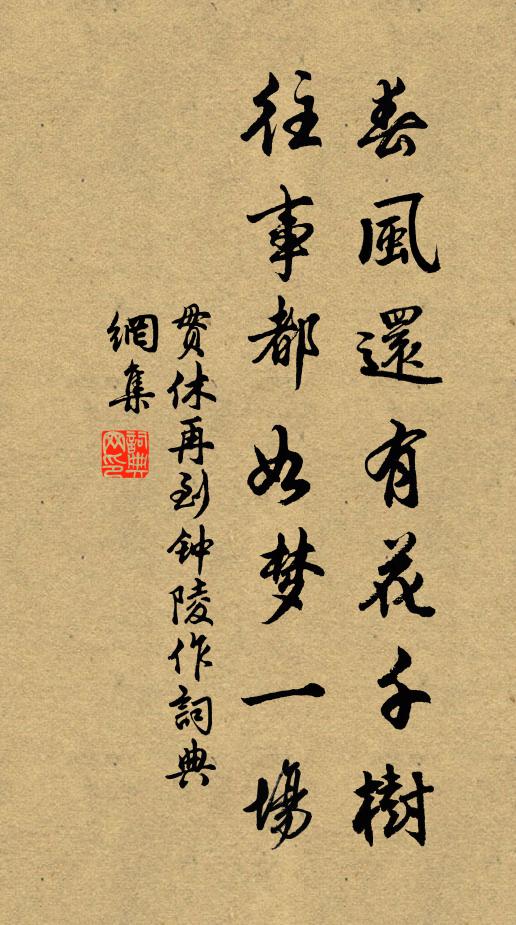 春風還有花千樹
往事都如梦一場
贯休再到钟陵作詞典
網集
詞典网印